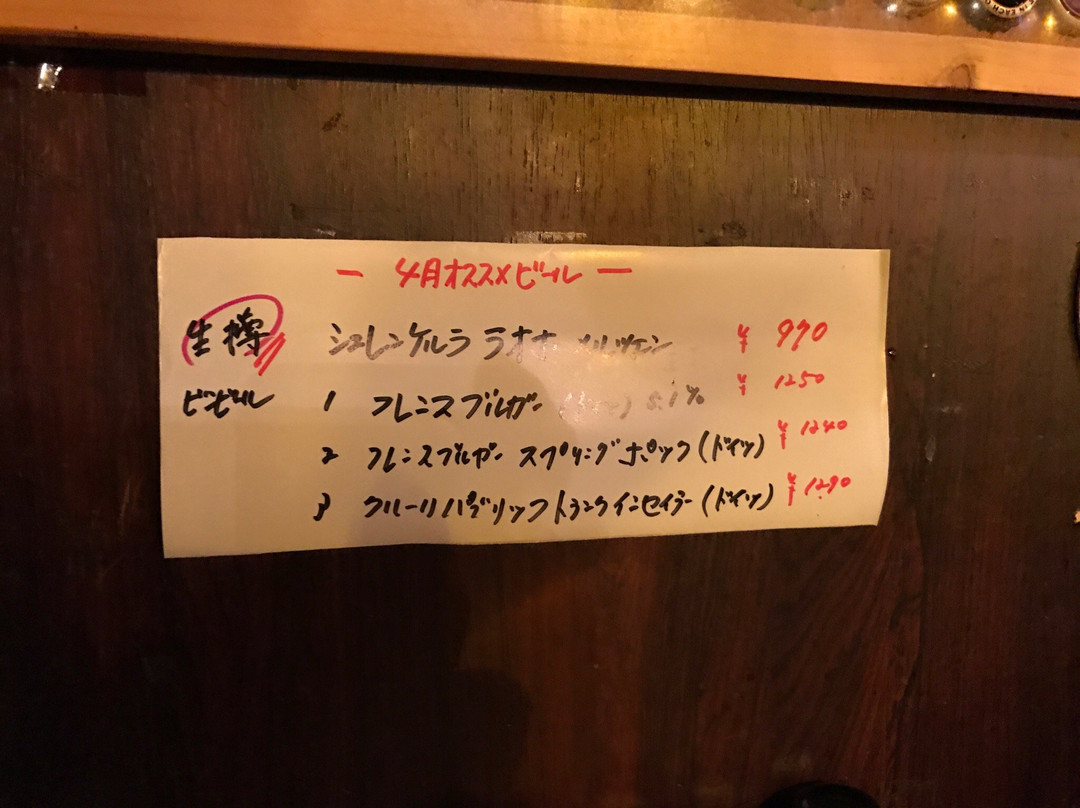 IN EACH
— 4月オススメビール —
生樽 シュレンケルラ ラオホ メルツェン ¥970
ビンビール 1 フレンスブルガー (ドイツ) 5.1% ¥1250
2 フレンスブルガー スプリングボック (ドイツ) ¥1240
3 クルーリパブリック (ドイツ) ¥1290